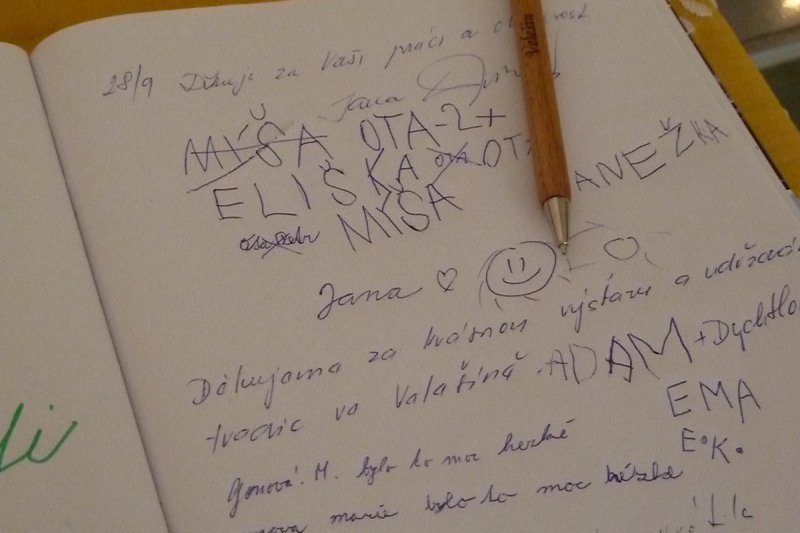 28/9 Děkuji za Vaši práci a
Jana
MÍŠA OTA-2+
ELIŠKA OTA OT
ANEŽKA
MÍŠA
Jana ♡
Děkujeme za krásnou výstavu a udržování
tradic ve Valašině. ADAM + Dychtlo
EMA
E.K.
Gonová. M. bylo to moc hezké
marie bylo to moc hézké